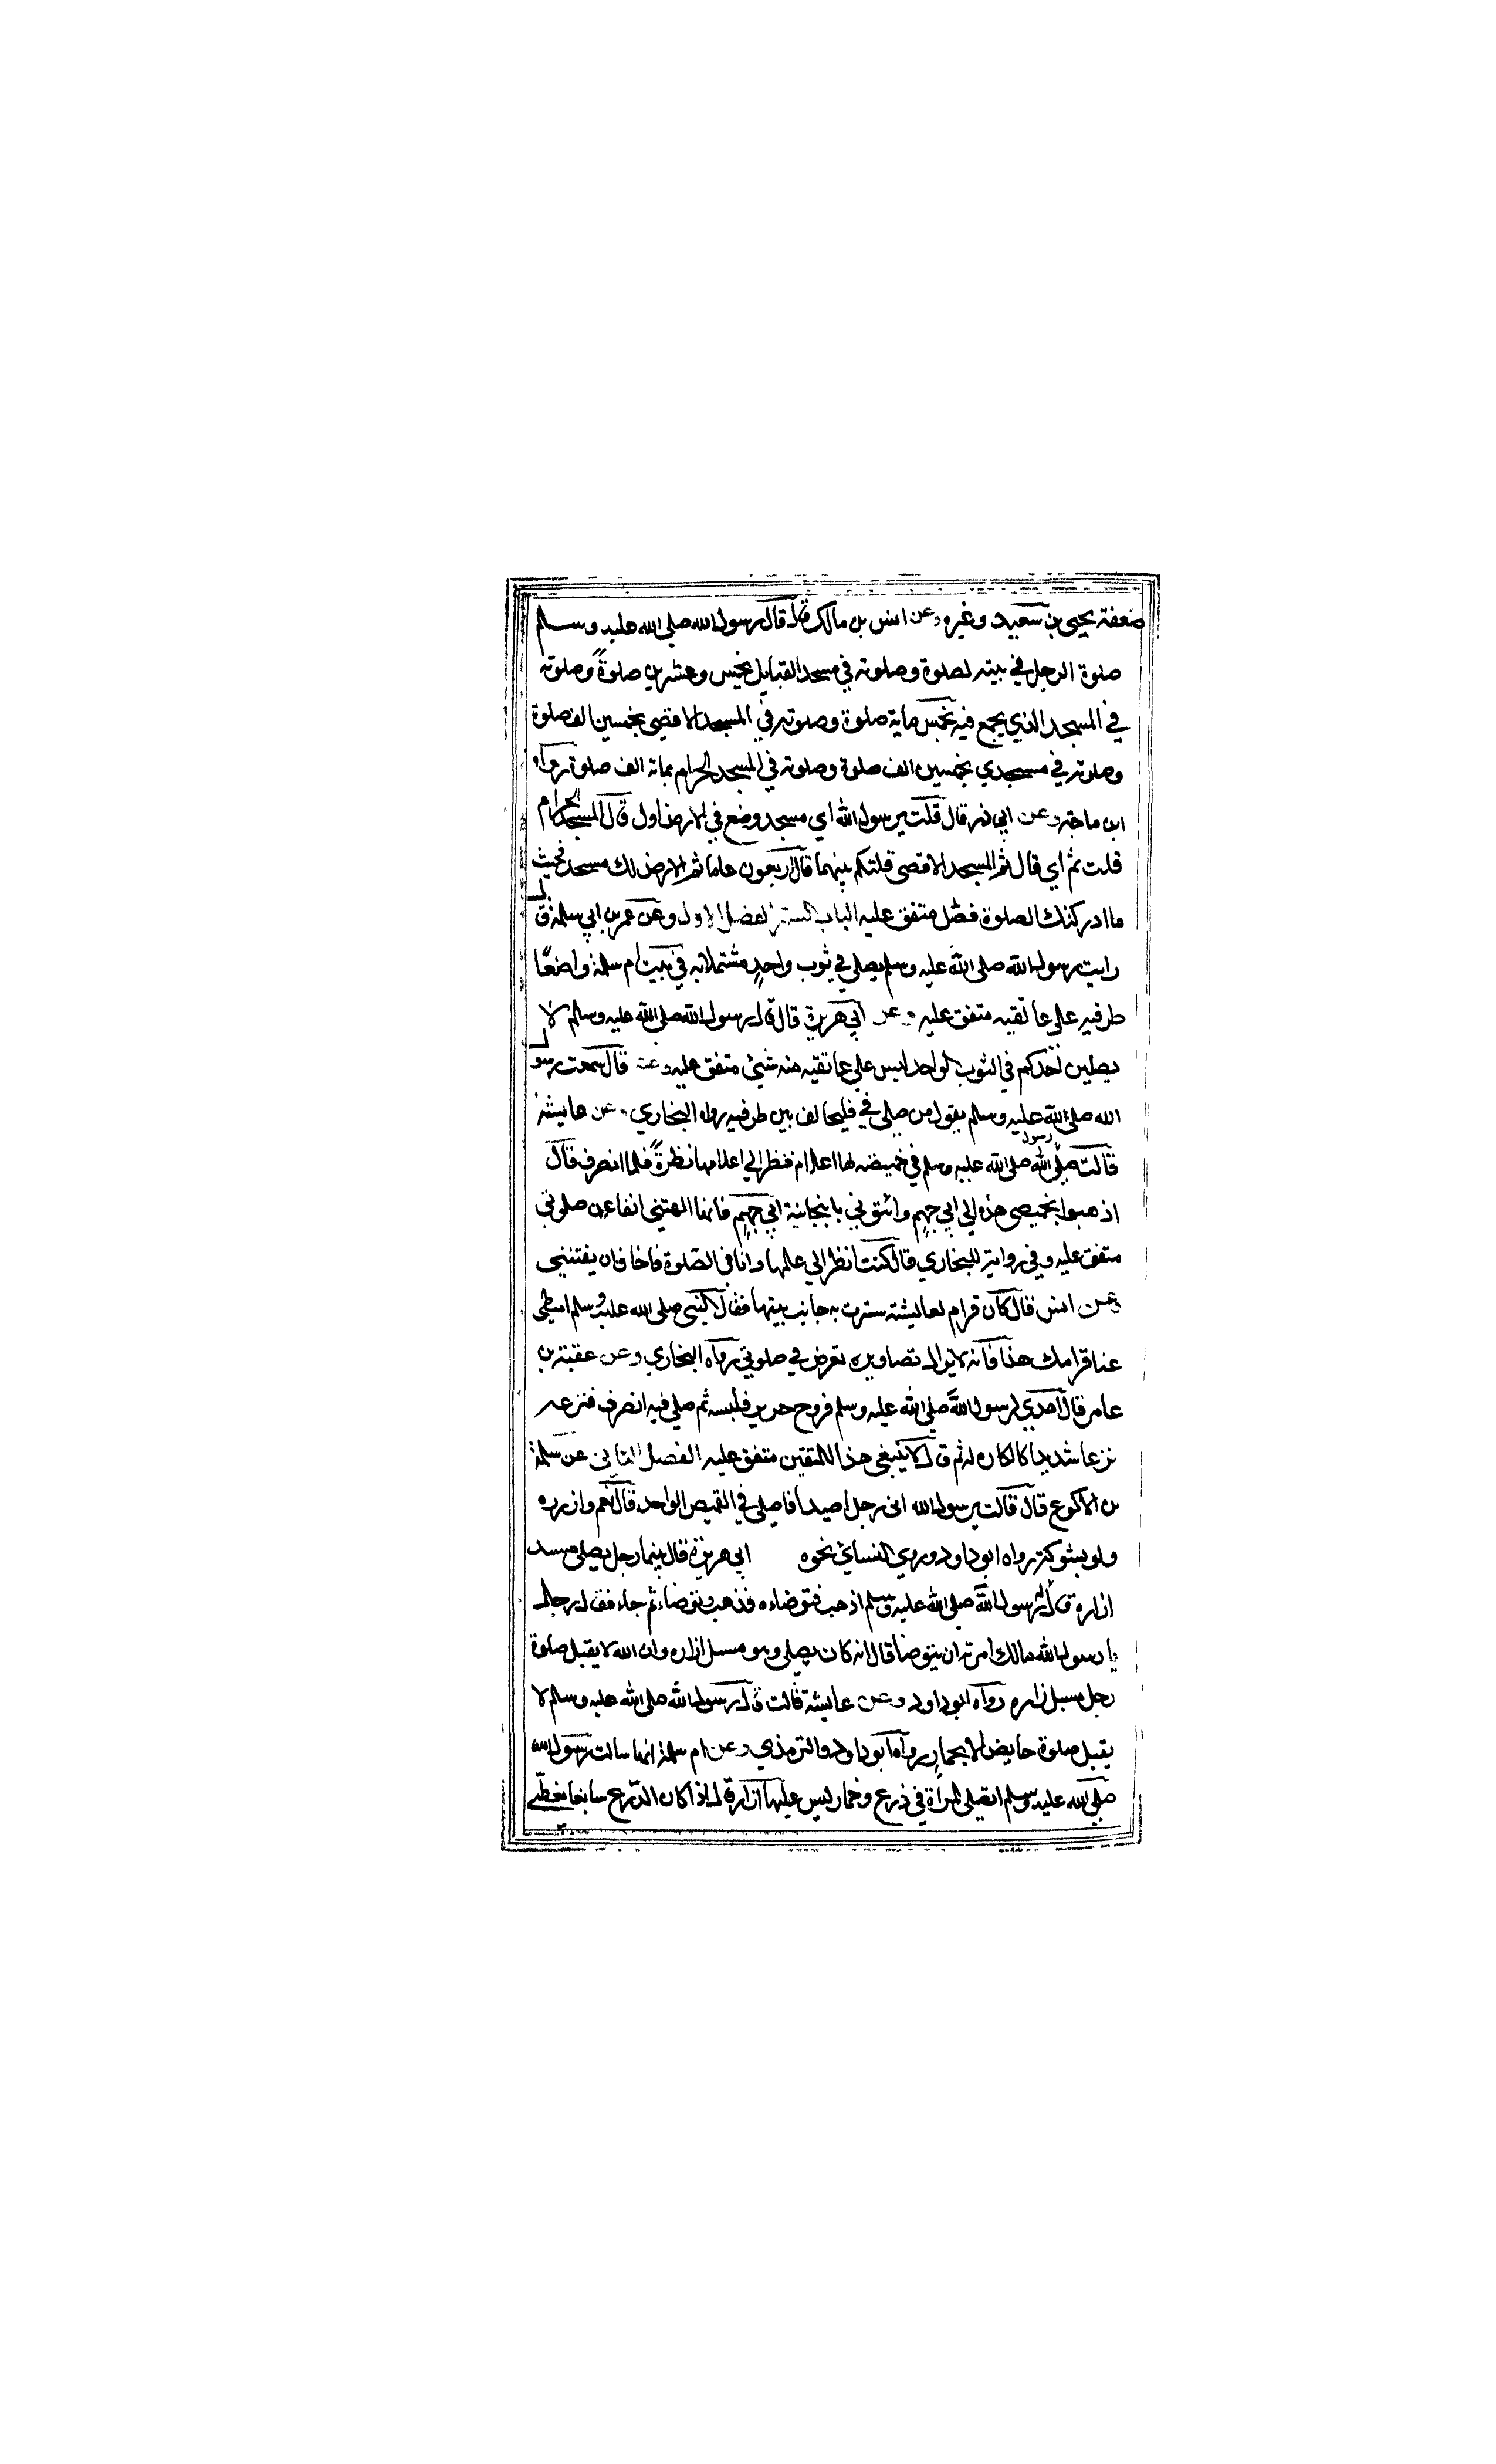 ضعفة يحيى بن سعيد وغيره وعن انس بن مالك قال قال رسول الله صلى الله عليه وسلم
صلوة الرجل في بيته لصلوة وصلوته في مسجد القبايل بخمس وعشرين صلوةً وصلوته
في المسجد الذي يجمع فيه بخمس ماية صلوة وصلوته في المسجد الاقصى بخمسين الف صلوة
وصلوته في مسجدي بخمسين الف صلوة وصلوته في المسجد الحرام بماته الف صلوة رواه
ابن ماجة وعن ابي ذر قال قلت يرسول الله اي مسجد وضع في الارض اول قال المسجد الحرام
قلت ثم اي قال ثم المسجد الاقصى قلت كم بينهما قال اربعون عاما ثم الارض لك مسجد فحيث
ما ادركتك الصلوة فصل متفق عليه الباب الستر الفصل الاول وعن عمر بن ابي سلمة قال
رايت رسول الله صلى الله عليه وسلم يصلي في ثوب واحدٍ مشتملا به في بيت ام سلمة واضعًا
طرفيه على عاتقيه متفق عليه وعن ابي هريرة قال قال رسول الله صلى الله عليه وسلم لا
يصلين احدكم في الثوب الواحد ليس على عاتقيه منه شيئ متفق عليه وعنه قال سمعت رسول
الله صلى الله عليه وسلم يقول من صلى في فليخالف بين طرفيه رواه البخاري وعن عايشة
قالت صلى رسول الله صلى الله عليه وسلم في خميصه لها اعلام فنظر الي اعلامها نظرةً فلما انصرف قال
اذهبوا بخميصي هذه الي ابي جهم وائتوني بانبجانية ابي جهم فانها الهتني انفا عن صلوتي
متفق عليه وفي رواية للبخاري قال كنت انظر الي علمها وانا في الصلوة فاخاف ان يفتنني
وعن انس قال كان قرام لعايشة سترت به جانب بيتها فقال لها النبي صلى الله عليه وسلم اميطي
عنا قرامك هذا فانه لا يزال تصاويره تعرض في صلوتي رواه البخاري وعن عقبة بن
عامر قال اهدي لرسول الله صلى الله عليه وسلم فروج حرير فلبسه ثم صلي فيه انصرف فنزعه
نزعا شديدا كالكاره له ثم قال لا ينبغي هذا للمتقين متفق عليه الفصل الثاني عن سلمة
بن الاكوع قال قالت يرسول الله اني رجل اصيد افاصلي في القميص الواحد قال نعم وازرره
ولو بشوكة رواه ابو داود وروي النسائي نحوه ابي هريرة قال بينما رجل يصلي مسبل
ازاره قال له رسول الله صلى الله عليه وسلم اذهب فتوضاءه فذهب وتوضاء ثم جاء فقال رجل
يا رسول الله مالك امرته ان يتوضا قال انه كان يصلي وهو مسبل ازاره وان الله لا يقبل صلوة
رجل مسبل ازاره رواه ابو داود وعن عايشة قالت قال رسول الله صلى الله عليه وسلم لا
يقبل صلوة حايض الا بخمار رواه ابو داود والترمذي وعن ام سلمة انها سالت رسول الله
صلى الله عليه وسلم اتصلي المراة في ذرع وخمار ليس عليها ازار قال اذا كان الدرع سابغا يغطي